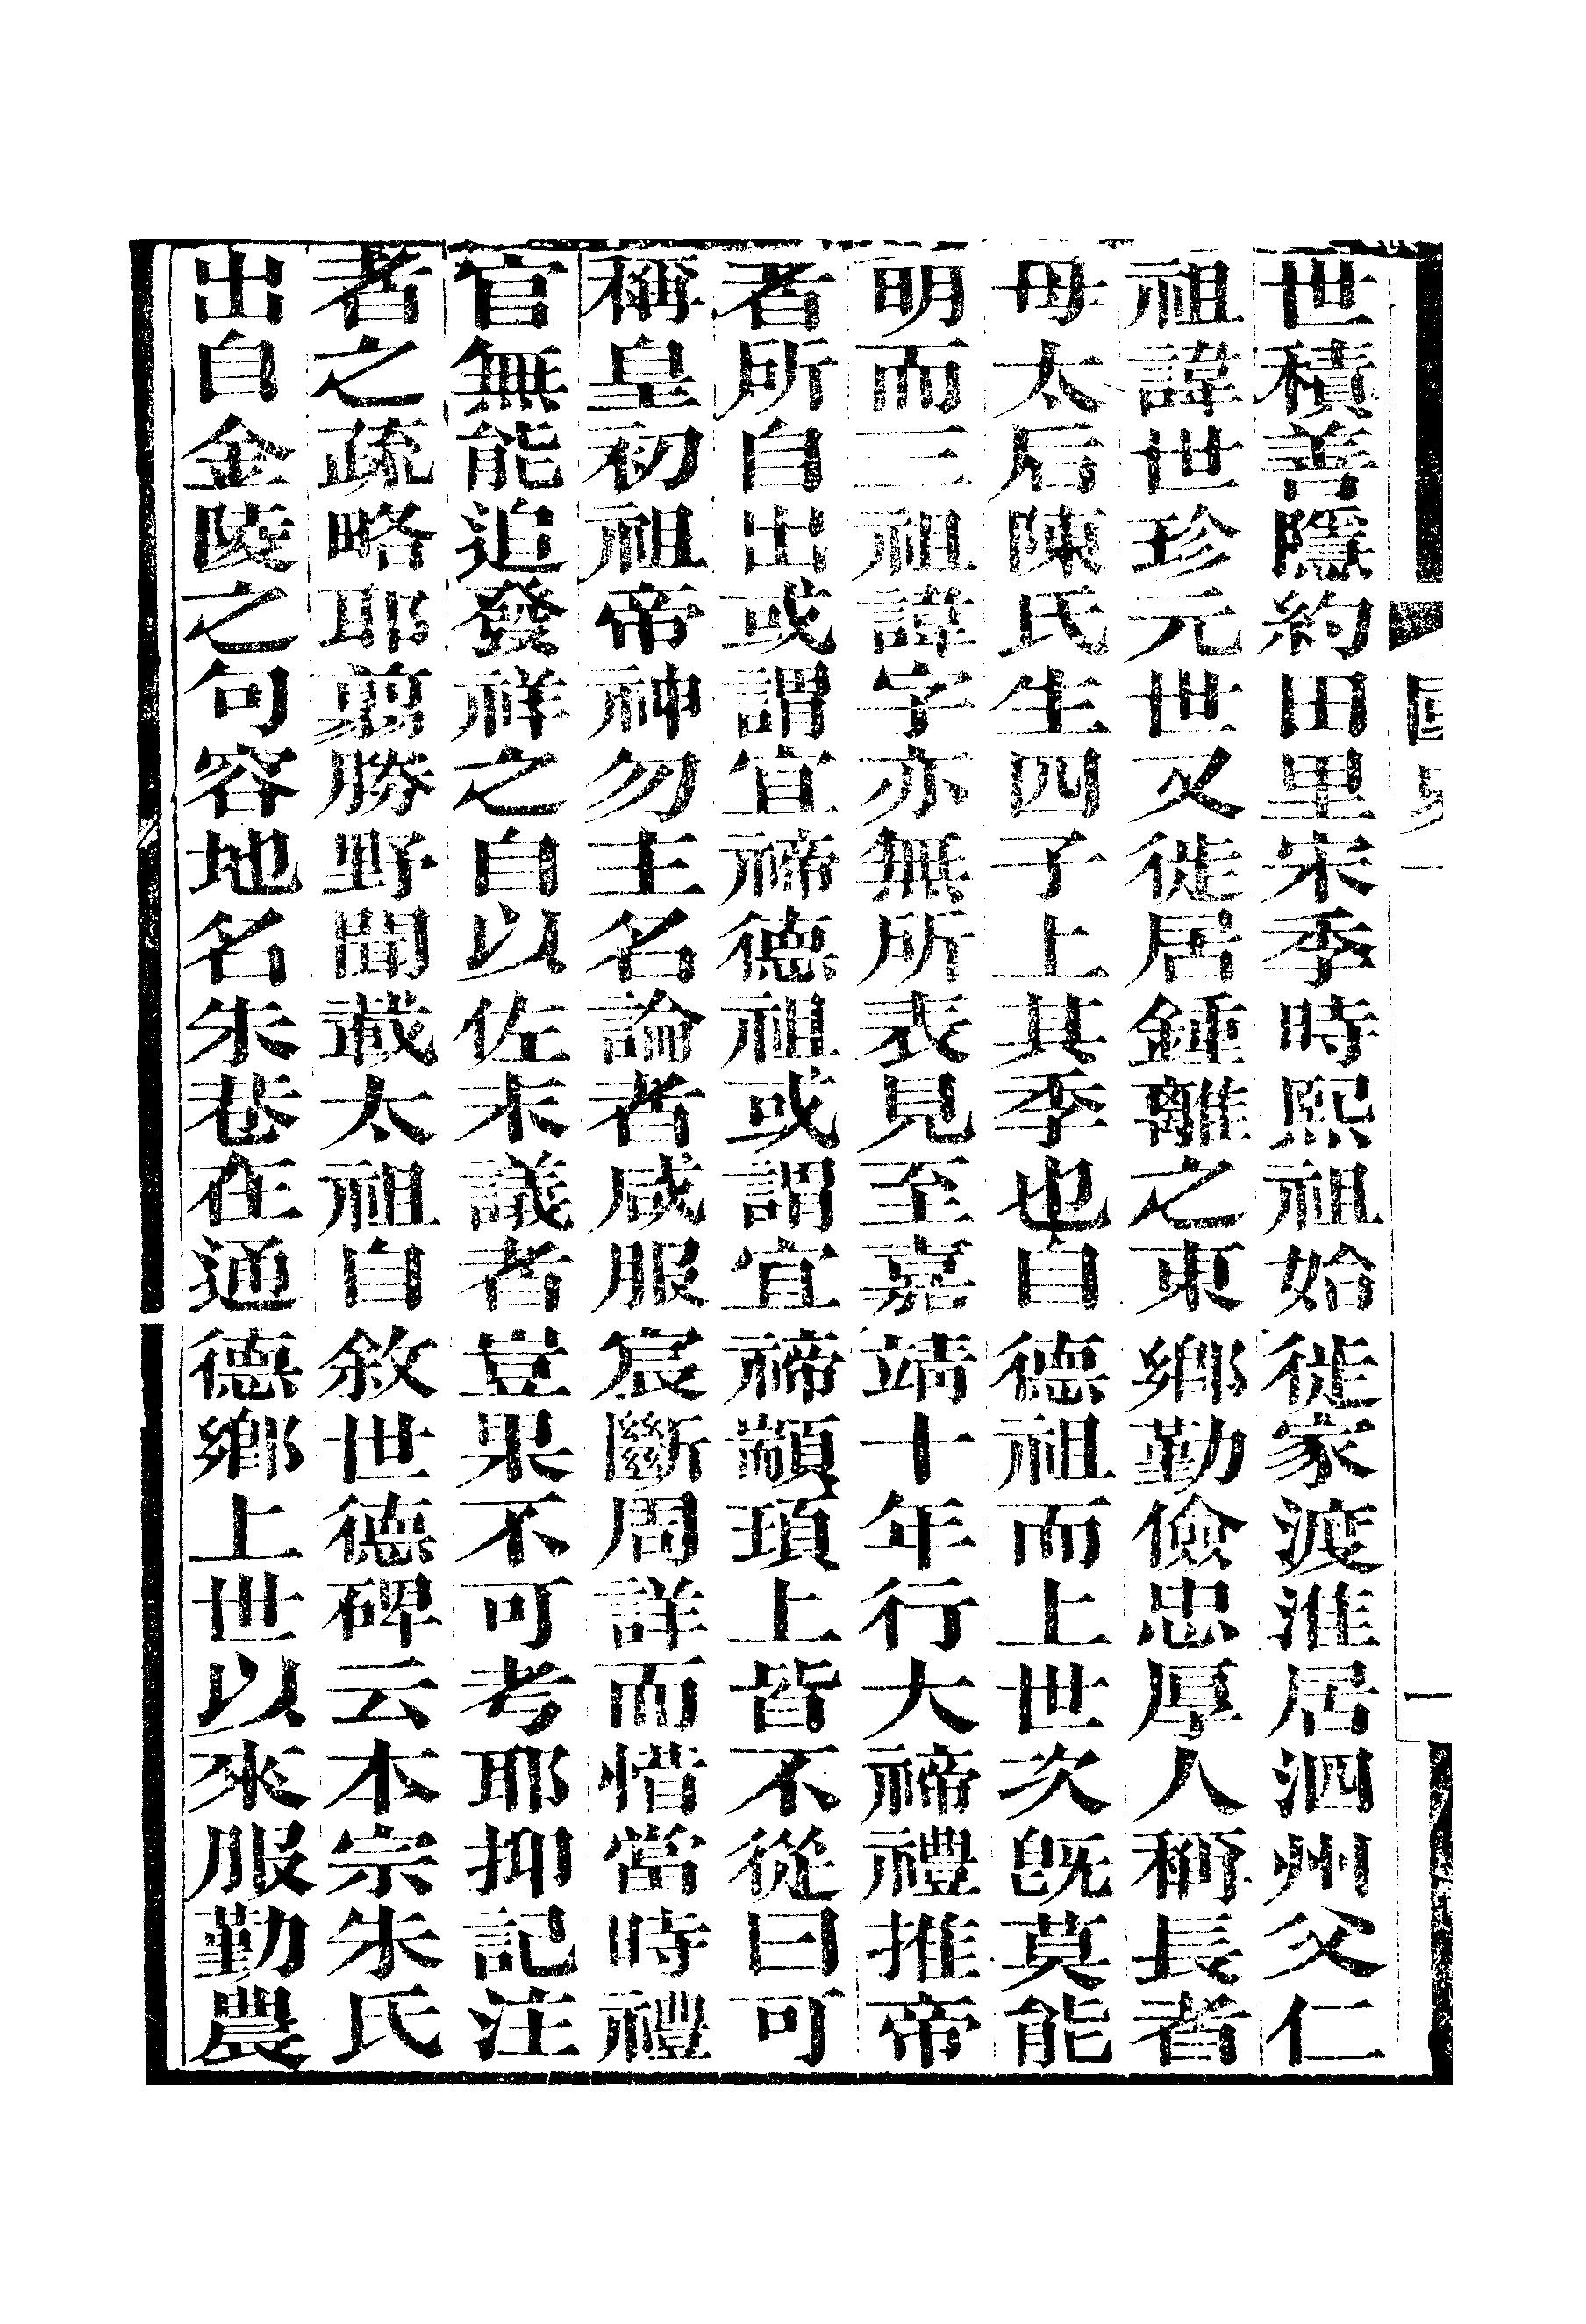 世積善隱約田里宋季時熙祖始徙家渡淮居泗州父仁
祖諱世珍元世又徙居鍾離之東鄉勤儉忠厚人稱長者
母太后陳氏生四子上其季也自德祖而上世次既莫能
明而三祖諱字亦無所表見至嘉靖十年行大禘禮推帝
者所自出或謂宜禘德祖或謂宜禘顓頊上皆不從曰可
稱皇初祖帝神勿主名論者咸服宸斷周詳而惜當時禮
官無能追發祥之自以佐末議者豈果不可考耶抑記注
者之疏略耶翦勝野聞載太祖自敘世德碑云本宗朱氏
出自金陵之句容地名朱巷在通德鄉上世以來服勤農